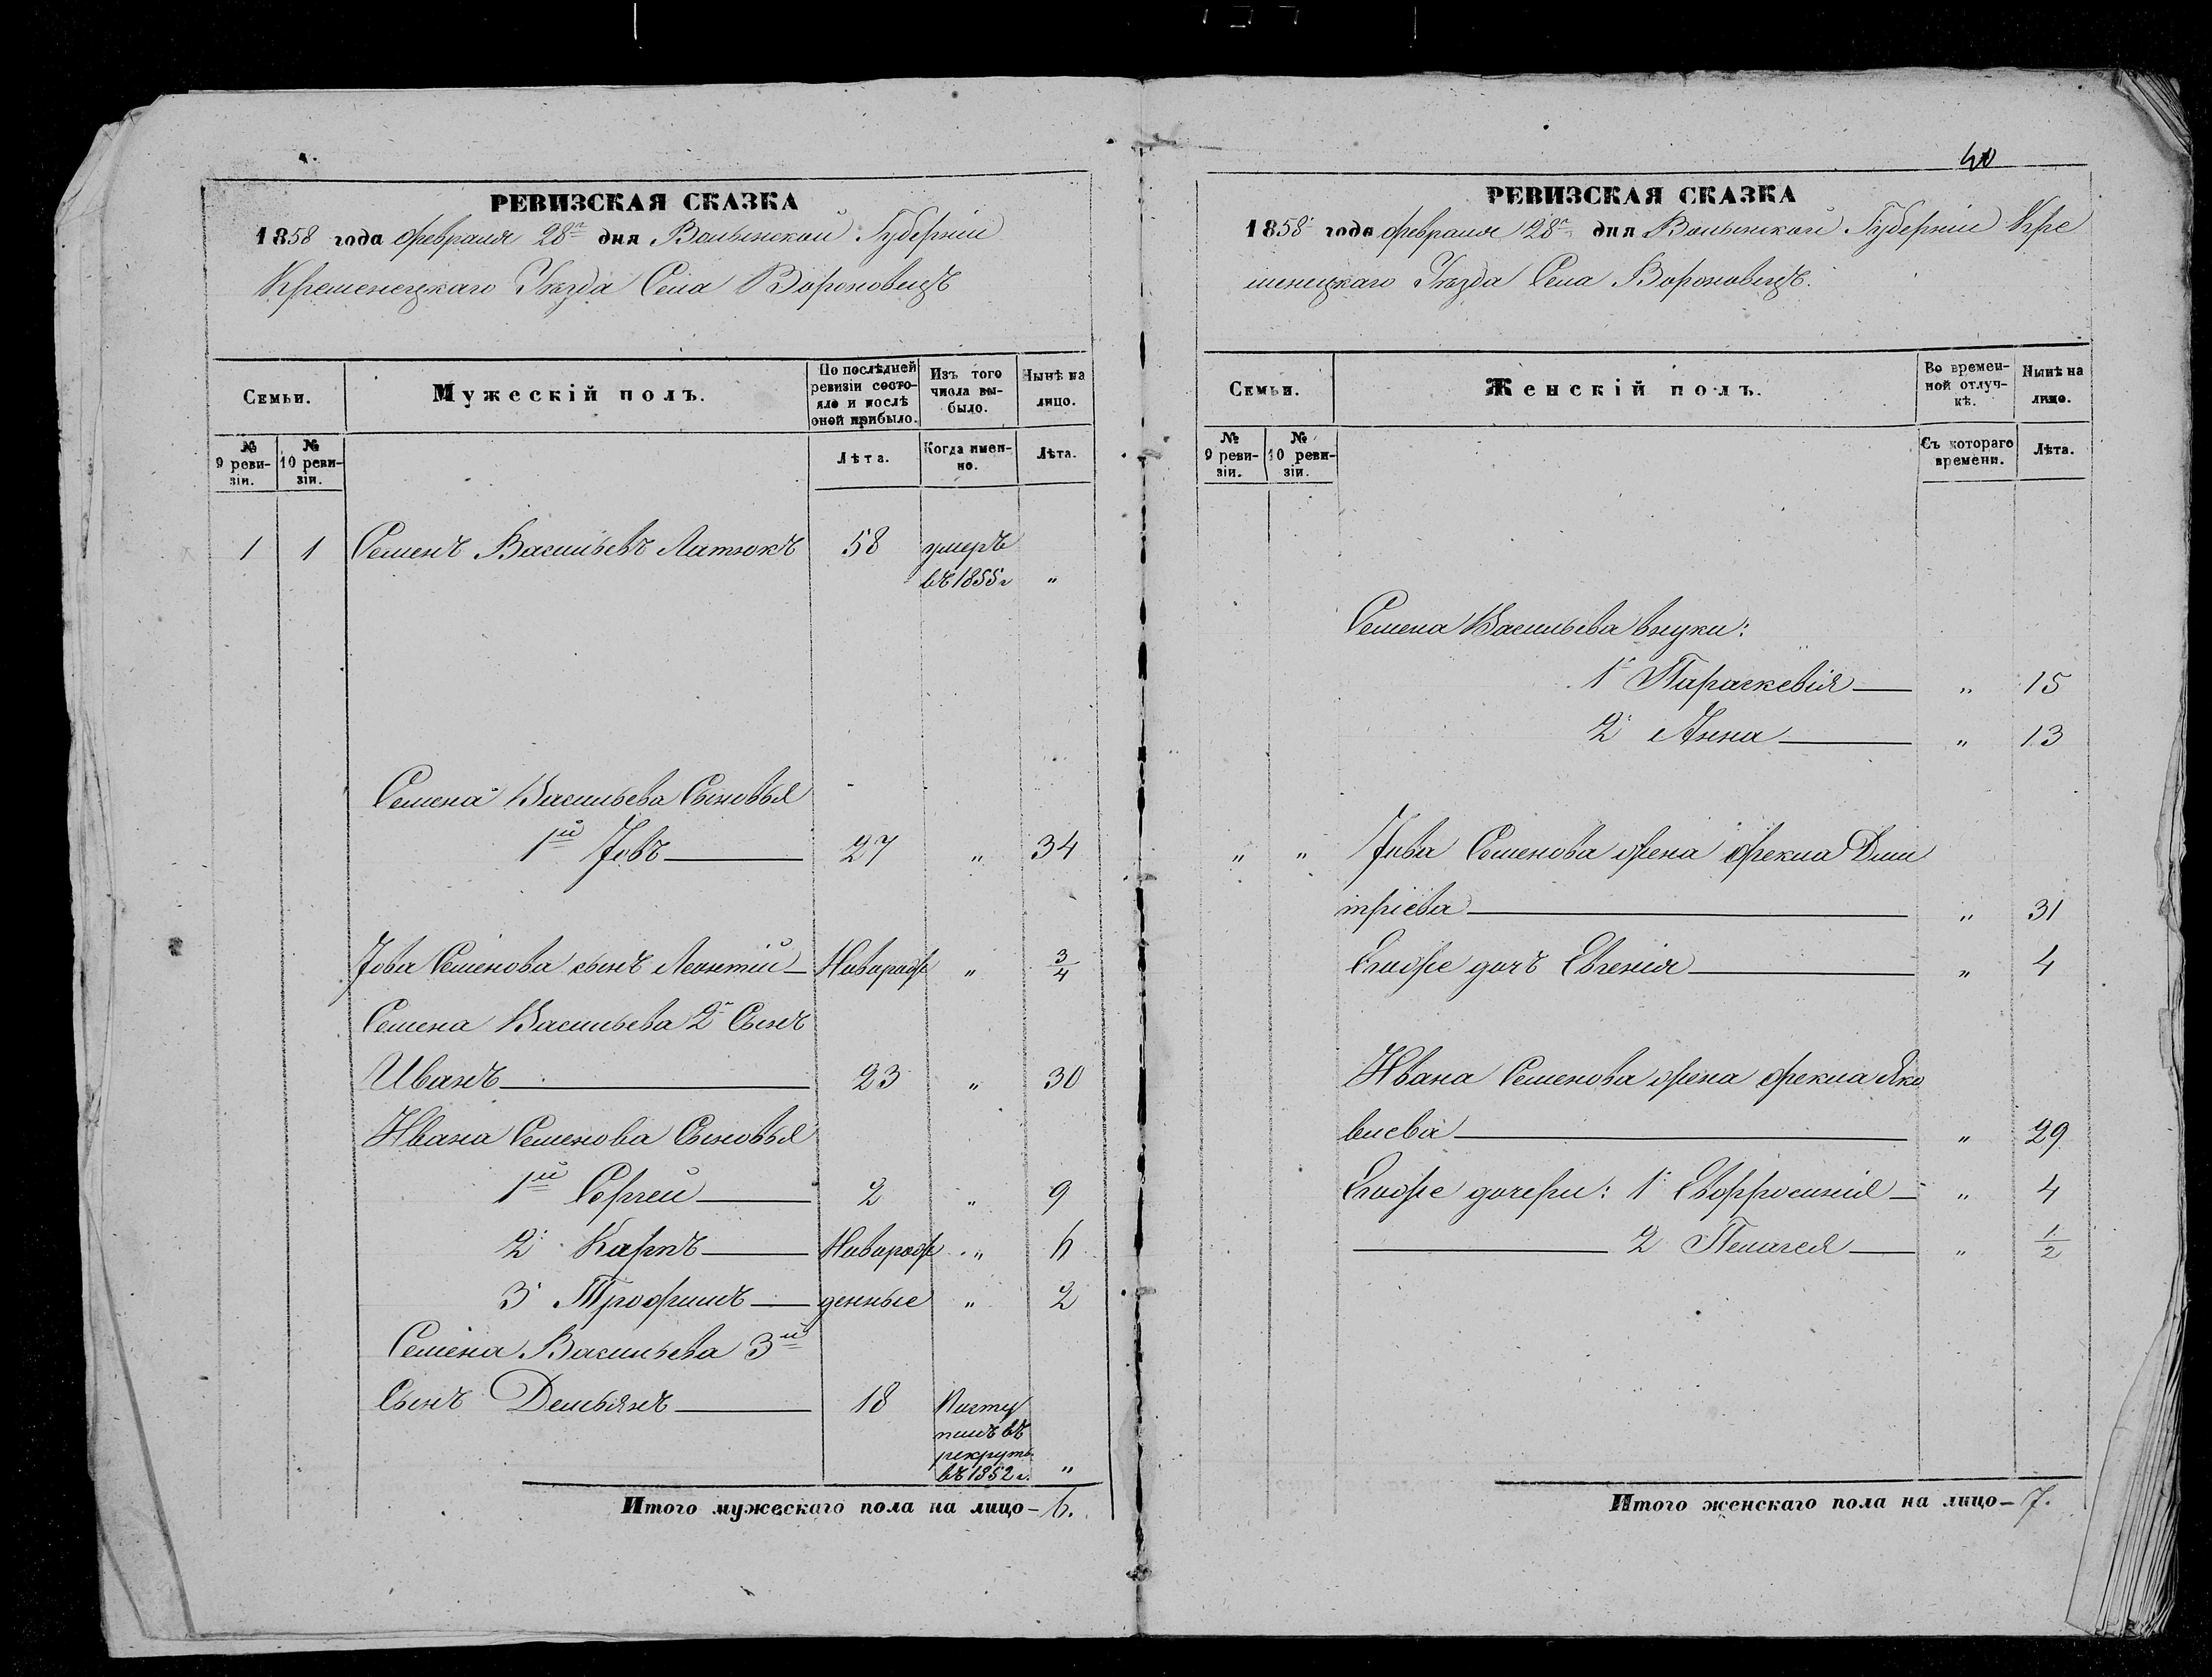 РЕВИЗСКАЯ СКАЗКА
1858 года февраля 28го дня Волынской Губерніи
Кременецкаго Уѣзда Села Вороновецъ
Семьи.
Мужескій полъ.
По послѣдней
ревизіи состо-
яло и послѣ
оной прибыло.
Изъ того
числа вы-
было.
Нынѣ на
лицо.
№
9 реви-
зіи.
№
10 реви-
зіи.
Лѣта.
Когда имен-
но.
Лѣта.
1 1 Семенъ Васильевъ Латюкъ 58 умеръ
въ 1855 г "
Семена Васильева Сыновья
1й Іовъ 27 " 34
Іова Семенова сынъ Леонтій Новорож " 3/4
Семена Васильева 2й Сынъ
Иванъ 23 " 30
Ивана Семенова Сыновья
1й Сергей 2 " 9
2й Карпъ Новорож " 6
3й Трофимъ денные " 2
Семена Васильева 3й
Сынъ Демьянъ 18 Посту
пилъ въ
рекруты
въ 1852 г. "
Итого мужескаго пола на лицо - 6.
40
РЕВИЗСКАЯ СКАЗКА
1858 года февраля 28го дня Волынской Губерніи Кре
менецкаго Уѣзда Села Вороновецъ.
Семьи.
Женскій полъ.
Во времен-
ной отлуч-
кѣ.
Нынѣ на
лицо.
№
9 реви-
зіи.
№
10 реви-
зіи.
Съ котораго
времени.
Лѣта.
Семена Васильева внуки:
1я Параскевія " 15
2я Анна " 13
" " Іова Семенова жена Фекла Дми
тріева " 31
Егожъ дочь Евгенія " 4
Ивана Семенова жена Фекла Яко
влева " 29
Егоже дочери: 1я Евфросинія " 4
2 Пелагея " 1/2
Итого женскаго пола на лицо - 7.